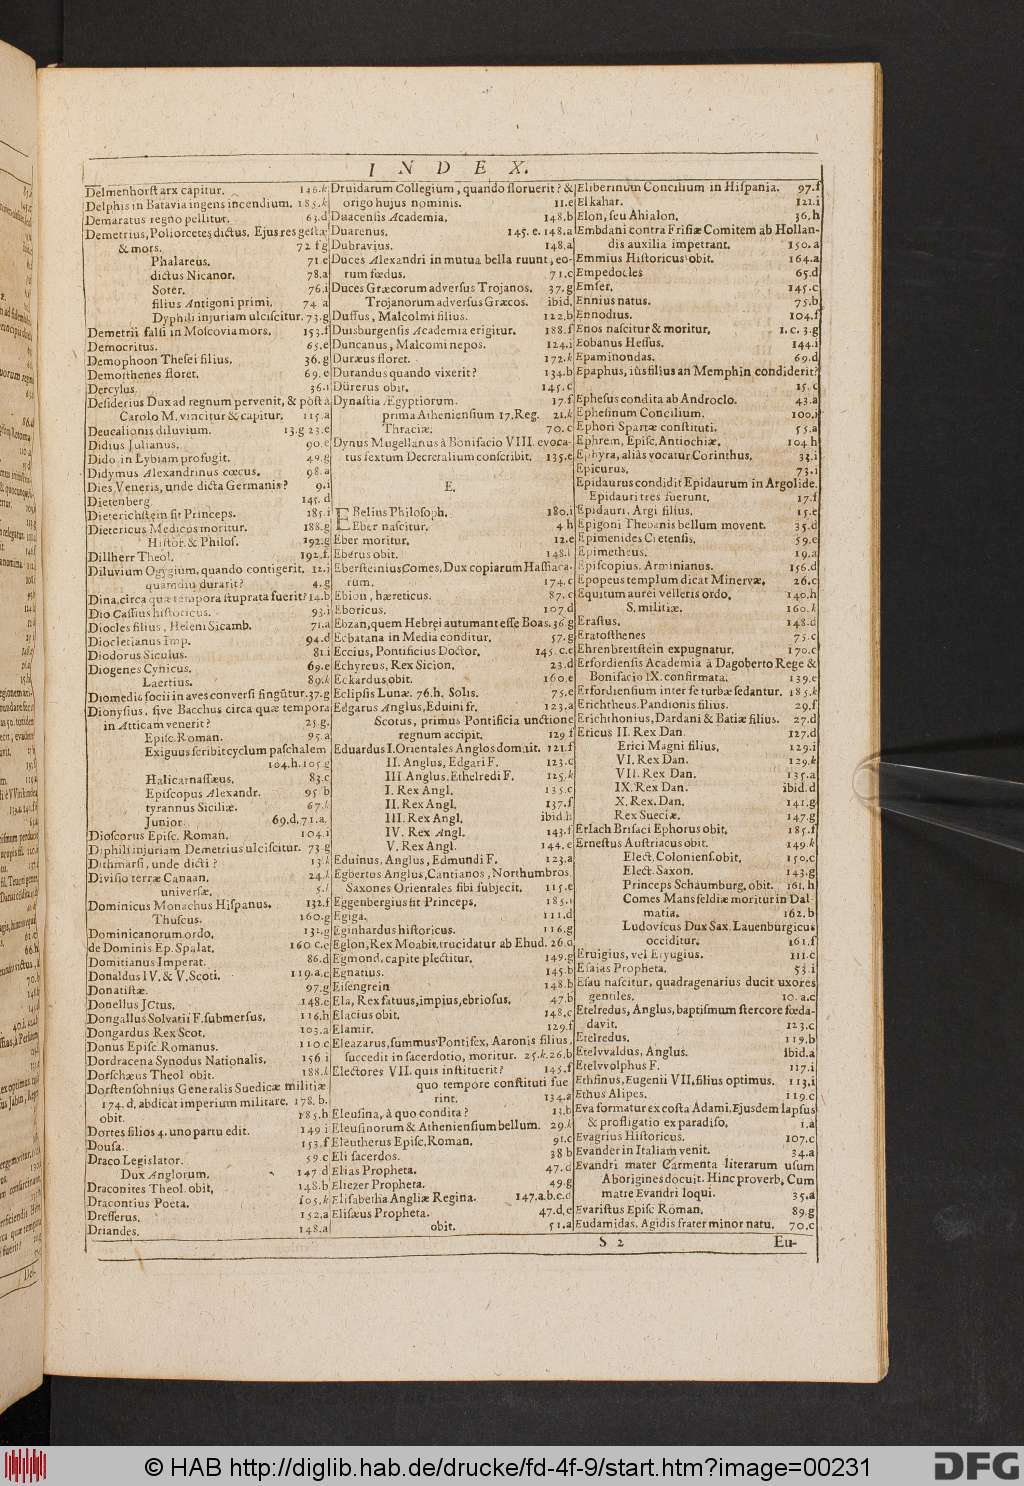 INDEX.
Delmenhorſt arx capitur. 146.k
Delphis in Batavia ingens incendium. 185.k
Demaratus regno pellitur. 63.d
Demetrius, Poliorcetes dictus. Ejus res geſtæ
& mors. 72 f g
Phalareus. 71 e
dictus Nicanor. 78.a
Soter. 76.i
filius Antigoni primi. 74 a
Dyphili injuriam ulciſcitur. 73.g
Demetrii falſi in Moſcovia mors. 153.f
Democritus. 65.e
Demophoon Theſei filius. 36.g
Demoſthenes floret. 69.e
Dercylus. 36.i
Deſiderius Dux ad regnum pervenit, & poſt à
Carolo M. vincitur & capitur. 115.a
Deucalionis diluvium. 13.g 23.e
Didius Julianus. 90.e
Dido in Lybiam profugit. 49.g
Didymus Alexandrinus cœcus. 98.a
Dies Veneris, unde dicta Germanis? 9.i
Dietenberg 145.d
Dieterichſtein fit Princeps. 185.i
Dietericus Medicus moritur. 188.g
Hiſtor. & Philoſ. 192.g
Dillherr Theol. 192.f
Diluvium Ogygium, quando contigerit. 12.i
quamdiu durarit? 4.g
Dina, circa quæ tempora ſtuprata fuerit? 14.b
Dio Caſſius hiſtoricus. 93.i
Diocles filius, Heleni Sicamb. 71.a
Diocletianus Imp. 94.d
Diodorus Siculus. 81 i
Diogenes Cynicus. 69.e
Laertius. 89.k
Diomedis ſocii in aves converſi fingũtur. 37.g
Dionyſius, ſive Bacchus circa quæ tempora
in Atticam venerit? 25.g.
Epiſc. Roman. 95.a
Exiguus ſcribit cyclum paſchalem
104.h. 105 g
Halicarnaſſæus. 83.c
Epiſcopus Alexandr. 95 b
tyrannus Siciliæ. 67.k
Junior. 69.d, 71.a.
Dioſcorus Epiſc. Roman. 104.i
Diphili injuriam Demetrius ulciſcitur. 73 g
Dithmarſi, unde dicti? 13.k
Diviſio terræ Canaan. 24.k
univerſæ. 5.k
Dominicus Monachus Hiſpanus. 132.f
Thuſcus. 160.g
Dominicanorum ordo. 132.g
de Dominis Ep. Spalat. 160 c.e
Domitianus Imperat. 86.d
Donaldus IV. & V. Scoti. 119.a,c
Donatiſtæ. 97.g
Donellus JCtus. 148.e
Dongallus Solvatii F. ſubmerſus. 116.h
Dongardus Rex Scot. 103.a
Donus Epiſc. Romanus. 110 c
Dordracena Synodus Nationalis. 156 i
Dorſchæus Theol obit. 188.k
Dorſtenſohnius Generalis Suedicæ militiæ
174.d. abdicat imperium militare. 178.b.
obit. 185.h
Dortes filios 4. uno partu edit. 149 i
Douſa. 153.f
Draco Legislator. 59 c
Dux Anglorum. 147.d
Draconites Theol. obit. 148.b
Dracontius Poeta. 105.k
Dreſſerus. 152.a
Driandes. 148.a
Druidarum Collegium, quando floruerit? &
origo hujus nominis. 11.e
Duacenſis Academia. 148.b
Duarenus. 145. e. 148.a
Dubravius. 148.a
Duces Alexandri in mutua bella ruunt, eo-
rum fœdus. 71.c
Duces Græcorum adverſus Trojanos. 37.g
Trojanorum adverſus Græcos. ibid.
Duffus, Malcolmi filius. 122.b
Duisburgenſis Academia erigitur. 188.f
Duncanus, Malcomi nepos. 124.i
Duræus floret. 172.k
Durandus quando vixerit? 134.b
Dürerus obit. 145.c
Dynaſtia Ægyptiorum. 17.f
prima Athenienſium 17. Reg. 21.k
Thraciæ. 70.c
Dynus Mugellanus à Bonifacio VIII. evoca-
tus ſextum Decretalium conſcribit. 135.e
E.
EBelius Philoſoph. 180.i
Eber naſcitur. 4 h
Eber moritur. 12.e
Eberus obit. 148.i
Eberſteinius Comes, Dux copiarum Haſſiaca-
rum. 174.c
Ebion, hæreticus. 87.c
Eboricus. 107 d
Ebzan, quem Hebrei autumant eſſe Boas. 36 g
Ecbatana in Media conditur. 57.g
Eccius, Pontificius Doctor. 145.c.e
Echyreus, Rex Sicion. 23.d
Eckardus obit. 160.e
Eclipſis Lunæ. 76.h. Solis. 75.e
Edgarus Anglus, Eduini fr. 123.a
Scotus, primus Pontificia unctione
regnum accipit. 129 f
Eduardus I. Orientales Anglos domuit. 121.f
II. Anglus, Edgari F. 123.c
III Anglus, Ethelredi F. 125.k
I. Rex Angl. 135.c
II. Rex Angl. 137.f
III. Rex Angl. ibid h
IV. Rex Angl. 143.f
V. Rex Angl. 144.e
Eduinus, Anglus, Edmundi F. 123.a
Egbertus Anglus, Cantianos, Northumbros,
Saxones Orientales ſibi ſubjecit. 115.e
Eggenbergius fit Princeps. 185.i
Egiga. 111.d
Eginhardus hiſtoricus. 116.g
Eglon, Rex Moabit. trucidatur ab Ehud. 26.a
Egmond. capite plectitur. 149.g
Egnatius. 145.b
Eiſengrein 148.b
Ela, Rex fatuus, impius, ebrioſus. 47.b
Elacius obit. 148.c
Elamir. 129.f
Eleazarus, ſummus Pontifex, Aaronis filius,
ſuccedit in ſacerdotio, moritur. 25.k.26.b
Electores VII. quis inſtituerit? 145.f
quo tempore conſtituti fue
rint. 134.a
Eleuſina, à quo condita? 13.b
Eleuſinorum & Athenienſium bellum. 29.k
Eleutherus Epiſc. Roman. 91.c
Eli ſacerdos. 38 b
Elias Propheta. 47.d
Eliezer Propheta. 49.g
Eliſabetha Angliæ Regina. 147.a.b.c.d
Eliſæus Propheta. 47.d,e
obit. 51.a
Eliberinum Concilium in Hiſpania. 97.f
Elkahar. 121.i
Elon, ſeu Ahialon. 36.h
Embdani contra Friſiæ Comitem ab Hollan-
dis auxilia impetrant. 150.a
Emmius Hiſtoricus obit. 164.a
Empedocles 65.d
Emſer. 145.c
Ennius natus. 75.b
Ennodius. 104.f
Enos naſcitur & moritur. 1.c.3.g
Eobanus Heſſus. 144.i
Epaminondas. 69.d
Epaphus, iûs filius an Memphin condiderit?
15.c
Epheſus condita ab Androclo. 43.a
Epheſinum Concilium. 100.i
Ephori Spartæ conſtituti. 55.a
Ephrem, Epiſc. Antiochiæ. 104 h
Ephyra, aliàs vocatur Corinthus. 33.i
Epicurus. 73.i
Epidaurus condidit Epidaurum in Argolide.
Epidauri tres fuerunt. 17.f
Epidauri, Argi filius. 15.e
Epigoni Thebanis bellum movent. 35.d
Epimenides Cretenſis. 59.e
Epimetheus. 19.a
Epiſcopius. Arminianus. 156.d
Epopeus templum dicat Minervæ. 26.c
Equitum aurei velleris ordo. 140.h
S. militiæ. 160.k
Eraſtus. 148.d
Eratoſthenes 75.c
Ehrenbreitſtein expugnatur. 170.c
Erfordienſis Academia à Dagoberto Rege &
Bonifacio IX. confirmata. 139.e
Erfordienſium inter ſe turbæ ſedantur. 185.k
Erichtheus. Pandionis filius. 29.f
Erichthonius, Dardani & Batiæ filius. 27.d
Ericus II. Rex Dan. 127.d
Erici Magni filius. 129.i
VI. Rex Dan. 129.k
VII. Rex Dan. 135.a
IX. Rex Dan. ibid.d
X. Rex. Dan. 141.g
Rex Sueciæ. 147.g
Erlach Briſaci Ephorus obit. 185.f
Erneſtus Auſtriacus obit. 149.k
Elect. Colonienſ. obit. 150.c
Elect. Saxon. 143.g
Princeps Schaumburg. obit. 161.h
Comes Mansfeldiæ moritur in Dal
matia. 162.b
Ludovicus Dux Sax. Lauenburgicus
occiditur. 161.f
Eruigius, vel Eryugius. 111.c
Eſaias Propheta. 53.i
Eſau naſcitur, quadragenarius ducit uxores
gentiles. 10.a.c
Etelredus, Anglus, baptiſmum ſtercore fœda-
davit. 123.c
Etelredus. 119.b
Etelvvaldus, Anglus. ibid.a
Etelvvolphus F. 117.i
Ethfinus, Eugenii VII. filius optimus. 113.i
Ethus Alipes. 119.c
Eva formatur ex coſta Adami. Ejusdem lapſus
& profligatio ex paradiſo. 1.a
Evagrius Hiſtoricus. 107.c
Evander in Italiam venit. 34.a
Evandri mater Carmenta literarum uſum
Aborigines docuit. Hinc proverb. Cum
matre Evandri loqui. 35.a
Evariſtus Epiſc Roman. 89.g
Eudamidas. Agidis frater minor natu. 70.c
S 2 Eu-
© HAB http://diglib.hab.de/drucke/fd-4f-9/start.htm?image=00231
DFG